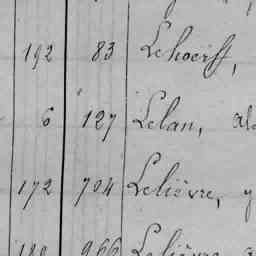 192 83 Lehoerff,
6 127 Lelan,
172 704 Lelièvre, y
180 966 Lelièvre